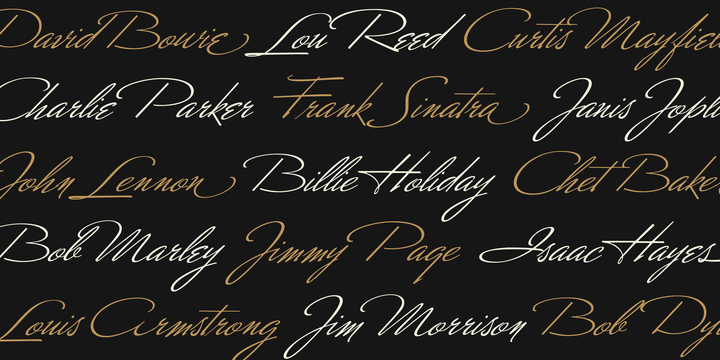 David Bowie Lou Reed Curtis Mayfiel
Charlie Parker Frank Sinatra Janis Jopli
John Lennon Billie Holiday Chet Bake
Bob Marley Jimmy Page Isaac Hayes
Louis Armstrong Jim Morrison Bob Dy